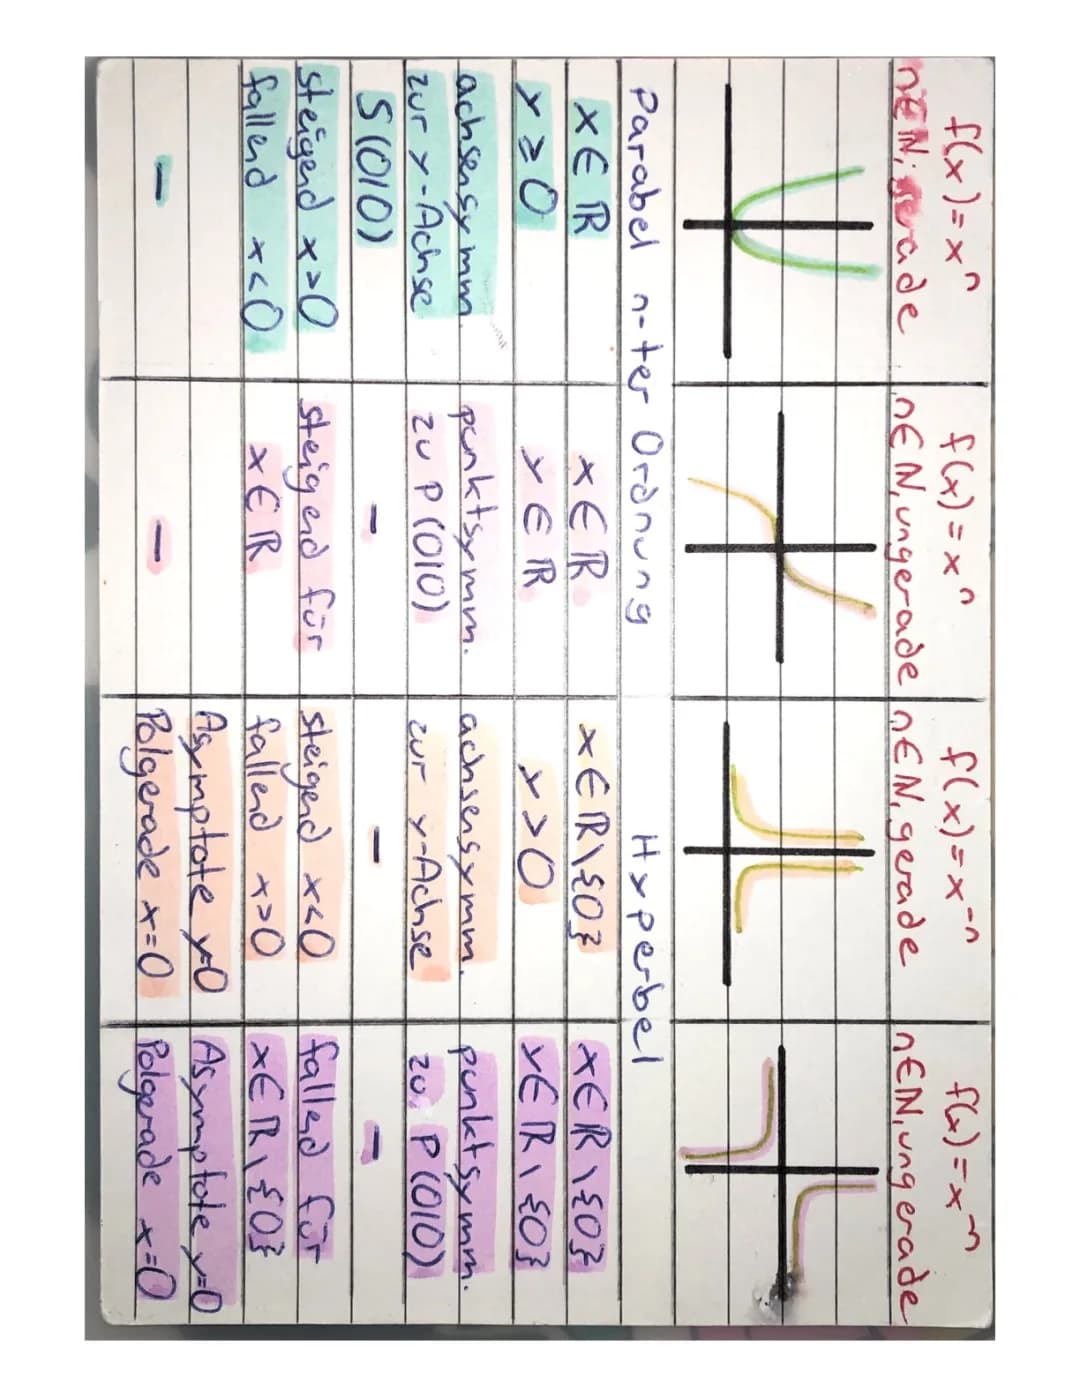 f(x)=xⁿ
n∈ℕ, gerade
f(x)=xⁿ
n∈ℕ, ungerade
f(x)=x⁻ⁿ
n∈ℕ, gerade
f(x)=x⁻ⁿ
n∈ℕ, ungerade
Parabel n-ter Ordnung
Hyperbel
x∈ℝ
x∈ℝ
x∈ℝ\{0}
x∈ℝ\{0}
y≥0
y∈ℝ
y>0
y∈ℝ\{0}
achsensymm.
zur y-Achse
punktsymm.
zu P(0|0)
achsensymm.
zur y-Achse
punktsymm.
zu P(0|0)
S(0|0)
-
-
-
steigend x>0
fallend x<0
steigend für
x∈ℝ
steigend x<0
fallend x>0
fallend für
x∈ℝ\{0}
-
-
Asymptote y=0
Polgerade x=0
Asymptote y=0
Polgerade x=0